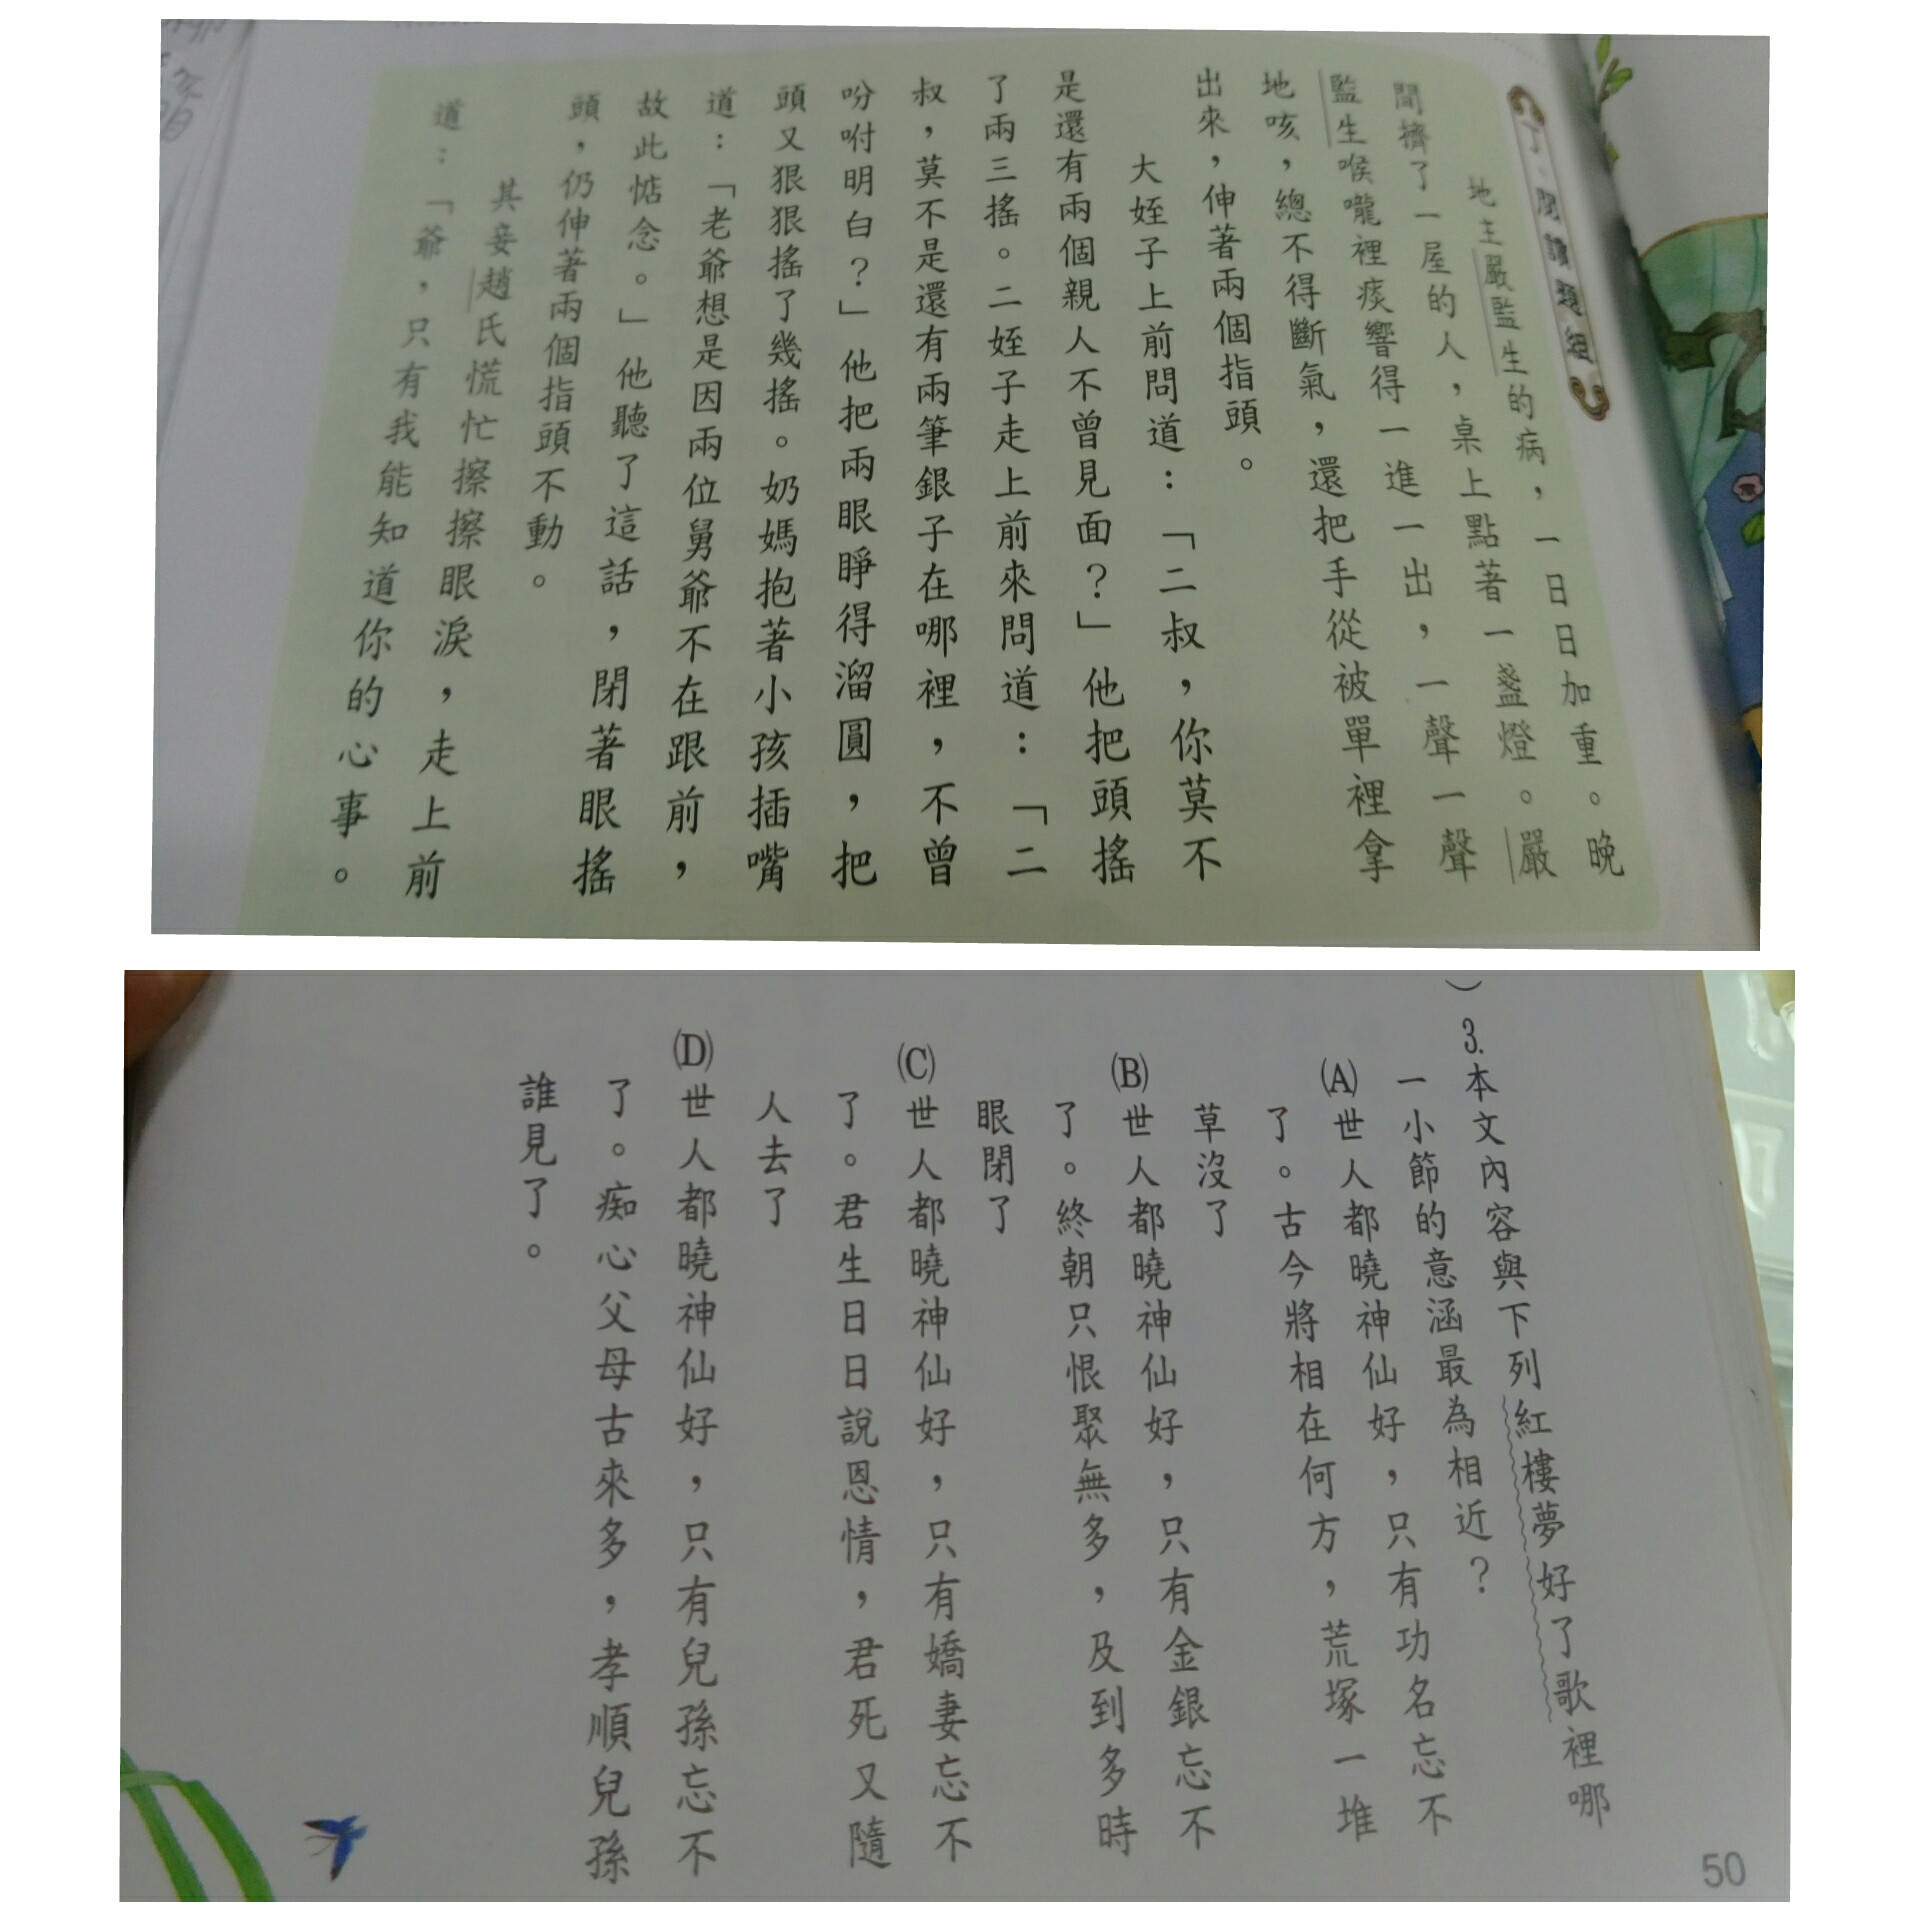 丁、閱讀題組
地主嚴監生的病，一日日加重。晚
間擠了一屋的人，桌上點著一盞燈。嚴
監生喉嚨裡痰響得一進一出，一聲一聲
地咳，總不得斷氣，還把手從被單裡拿
出來，伸著兩個指頭。
大姪子上前問道：「二叔，你莫不
是還有兩個親人不曾見面？」他把頭搖
了兩三搖。二姪子走上前來問道：「二
叔，莫不是還有兩筆銀子在哪裡，不曾
吩咐明白？」他把兩眼睜得溜圓，把
頭又狠狠搖了幾搖。奶媽抱著小孩插嘴
道：「老爺想是因兩位舅爺不在跟前，
故此惦念。」他聽了這話，閉著眼搖
頭，仍伸著兩個指頭不動。
其妾趙氏慌忙擦擦眼淚，走上前
道：「爺，只有我能知道你的心事。
）3.本文內容與下列紅樓夢好了歌裡哪
一小節的意涵最為相近？
(A)世人都曉神仙好，只有功名忘不
了。古今將相在何方，荒塚一堆
草沒了
(B)世人都曉神仙好，只有金銀忘不
了。終朝只恨聚無多，及到多時
眼閉了
(C)世人都曉神仙好，只有嬌妻忘不
了。君生日日說恩情，君死又隨
人去了
(D)世人都曉神仙好，只有兒孫忘不
了。痴心父母古來多，孝順兒孫
誰見了。
50